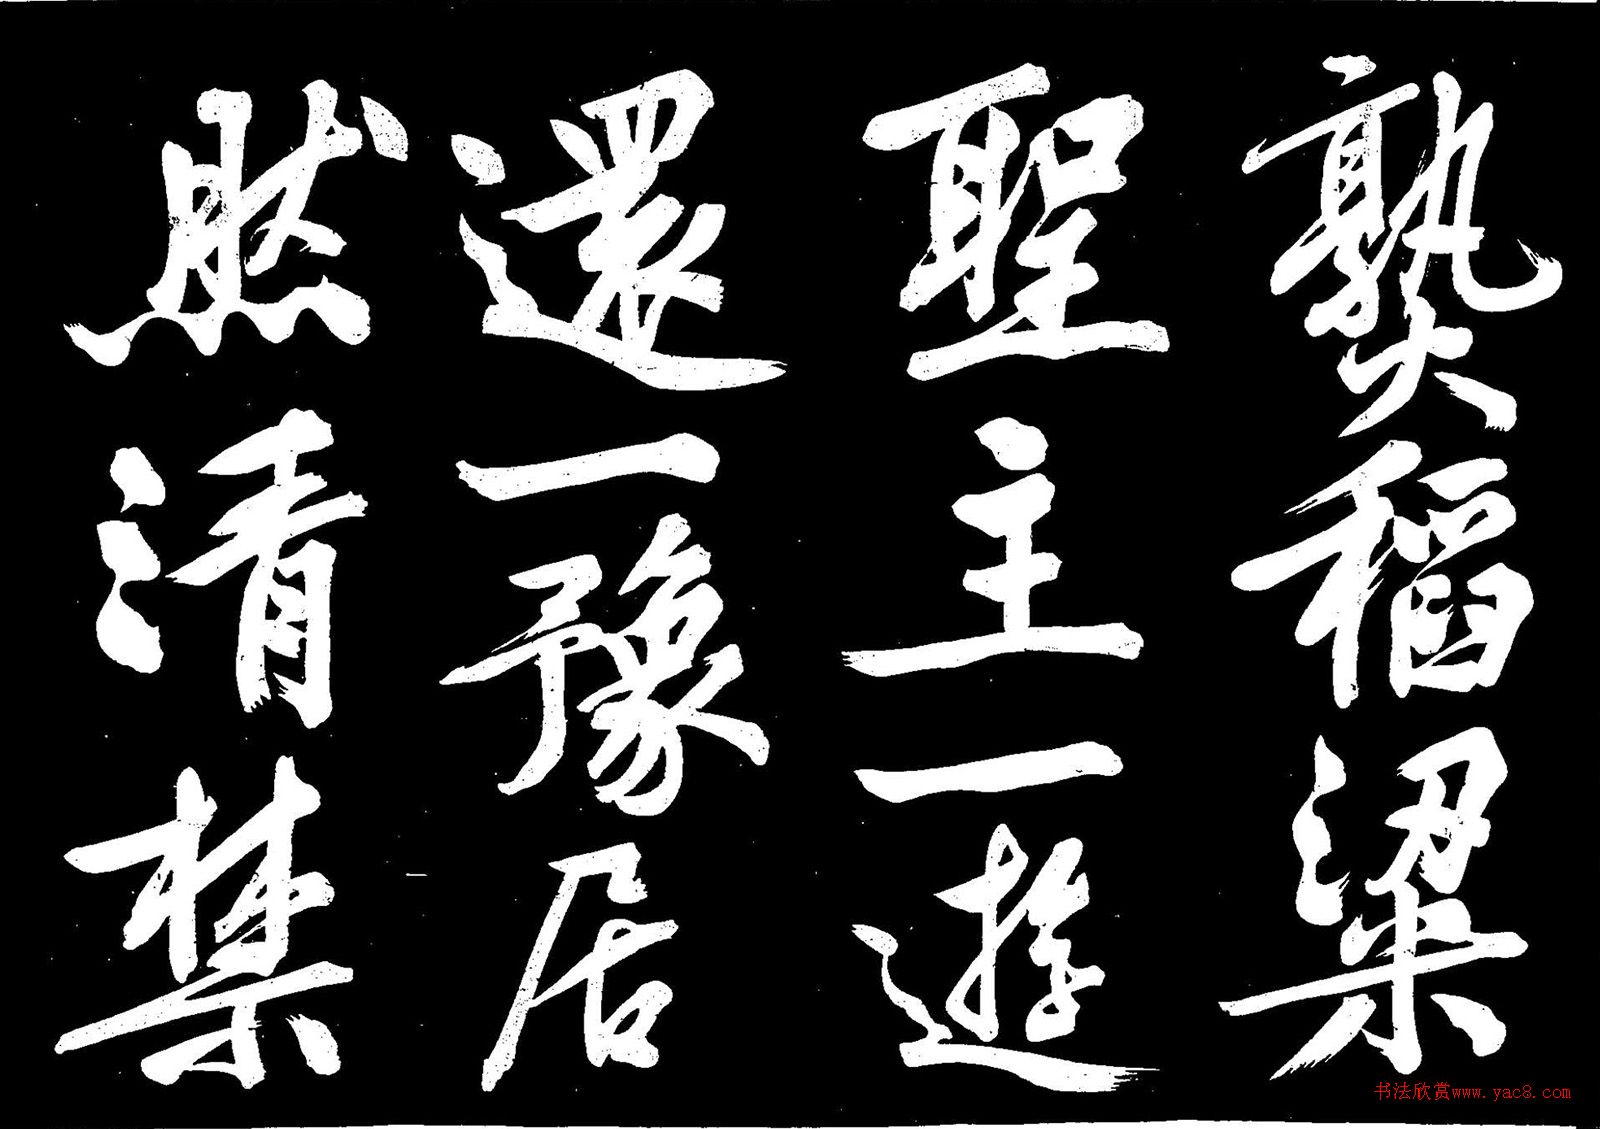 熟稻粱
聖主一遊
還一豫居
然清禁
书法欣赏www.yac8.com